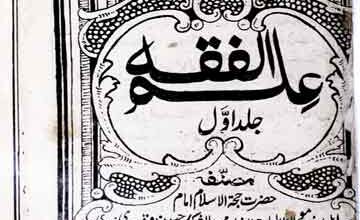 علم الفقہ
جلد اوّل
مصنفہ
حضرت حجۃ الاسلام امام